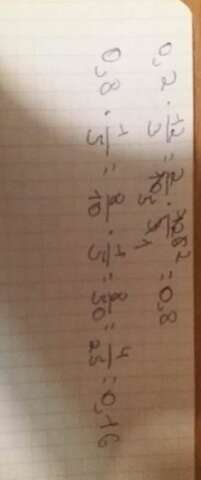 0,2 · 12/3 = 2/10 · = 0,8
0,8 · 1/5 = 8/10 · 1/5 = 8/50 = 4/25 = 0,16